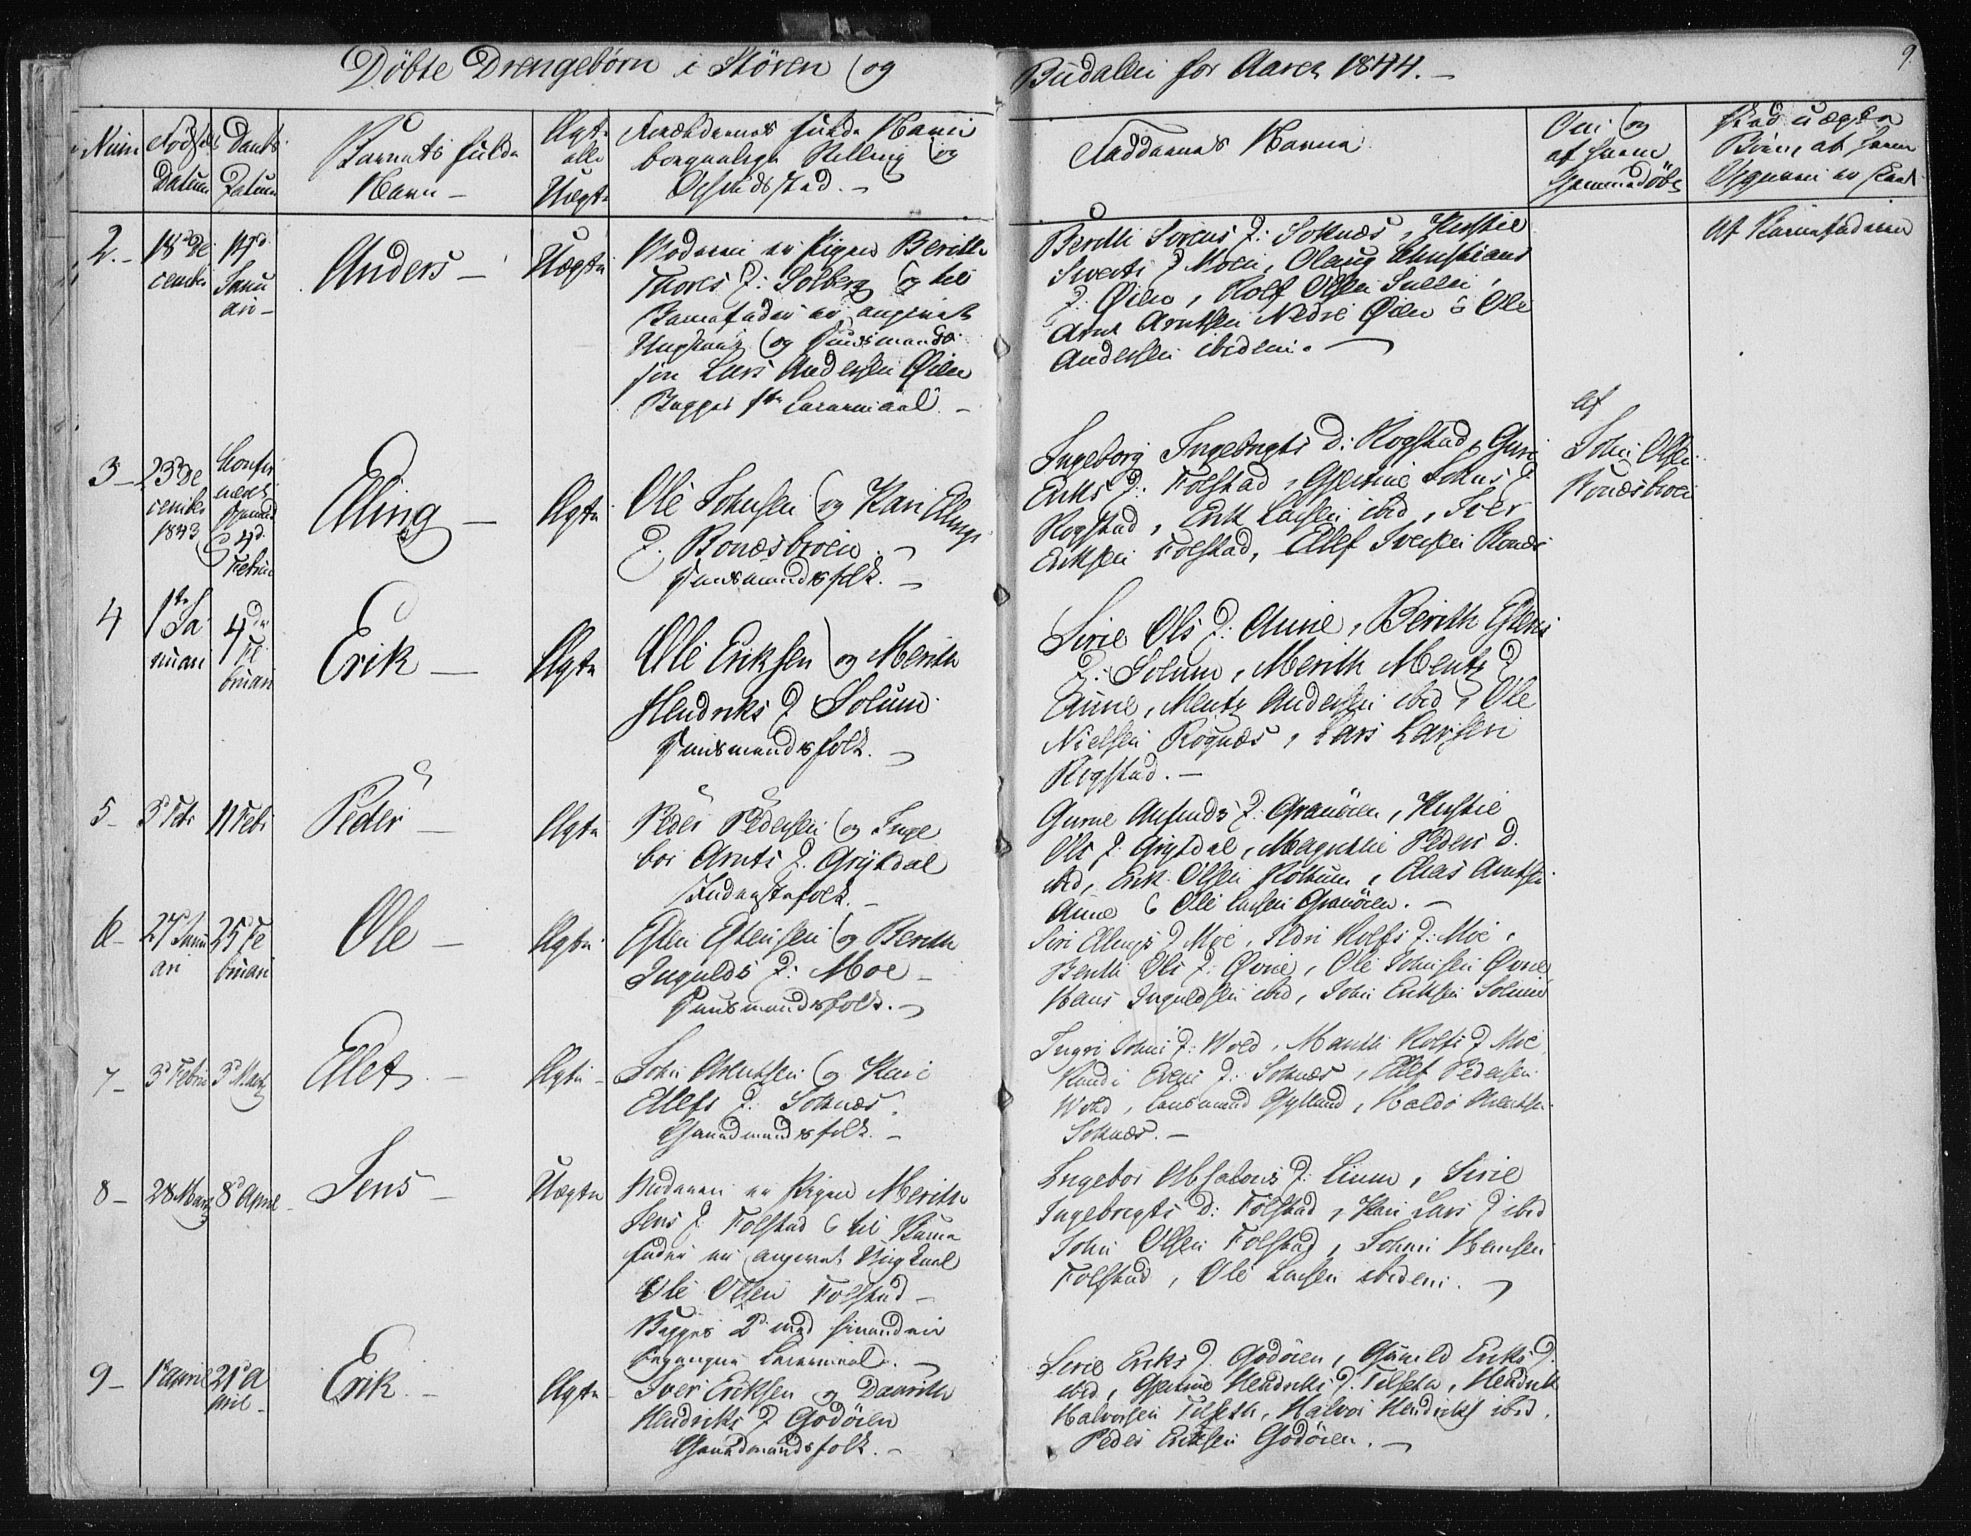 Döbte Drengebørn i Støren og Budalen for Aaret 1844. 9
Num Fødsels Datum Daabs Datum Barnets fulde Navn Ægte eller Uægte Forældrenes fulde Navne borgerlige Stilling og Opholdssted. Faddernes Navne Om og af hvem hjemmedøbt
2. 18de December 14de Januari Anders Uægte
Moderen er Pigen Berith
Thores D: Solberg og til
Barnefader er angivet
Ungkarl og Huusmands
søn Lars Andersen Øien
Begges 1ste Leiermaal.
Berith Sivers D: Soknæs, Kirstie
Siverts D Moen, Olaug Christians
D: Øien, Rolf Olsen
Arnt Arntsen Nedre Øien & Ole
Andersen ibidem.
Af Barnefaderen
3 23de December 1843 4d. Februar Elling Ægte
Ole Johnsen og Kari Ellings
D. Bonæsbroen
Huusmandsfolk.
Ingeborg Ingebrigts D: Rogstad, Guri
Eriks D: Folstad, Gjertrue Johns D
Rogstad, Erik Larsen ibid, Iver
Eriksen Folstad, Ellef Iversen
af
John Olsen
4 1ste Januari 4de Februari Erik Ægte
Ole Eriksen og Merith
Hendriks D Solum
Huusmandsfolk.
Sirie Ols D: Aune, Berith Estens
D: Solum, Merith Mentz D
Aune, Mentz Andersen ibid, Ole
Nielsen Rognæs, Lars Larsen
Rogstad.
5 3d Feb 11 Feb Peder Ægte
Peder Pedersen og Inge
bor Arnts D. Grytdal
Inderstefolk.
Gurine D: Granøien, Kirstie
Ols D. Grytdal, Magnhild Peders D.
ibid, Erik Olsen, Elias Arntsen
Aune & Ole Larsen Granøien.
6 27 Januari 25 Februari Ole Ægte
Esten Estensen og Berith
Ingvalds D: Moe
Huusmandsfolk.
Siri Ellings D Moe, Rolfs D: Moe,
Berith Ols D: Øvrie, Ole Johnsen Øvrie
Hans ibid, John Eriksen Solum
7 3d Februar 3d Martz Ellef Ægte
John og Kari
Ellefs D: Soknæs.
Gaardmandsfolk.
Ingri Johns D: Wold, Marith Rolfs D Moe
Randi Evens D: Soknæs, Ellef Pedersen
Wold,
Soknæs.
8 28 Marz 8d April Jens Uægte
Moderen er Pigen Merith
Jens D Folstad & til Barne
fader er angivet Ungkarl
Ole Olsen Folstad
Begges 2d med hinanden
begangne Leiermaal.
Ingebor Absalons D: Lium, Sirie
Ingebregts D: Folstad, Kari Lars D ibid
John Olsen Folstad, Johan Hansen
Folstad, Ole Larsen ibidem.
9 1ste April 21d April Erik Ægte
Iver Eriksen og Dorrith
Hendriks D Godøien
Gaardmandsfolk.
Serie Eriks D. Godøien, Gunild Eriks D.
ibid, Gjertrue Hendriks D. Tilseth, Hendrik
Halvorsen Tilseth, Halvor Hendriks ibid.
Peder Eriksen Godøien.